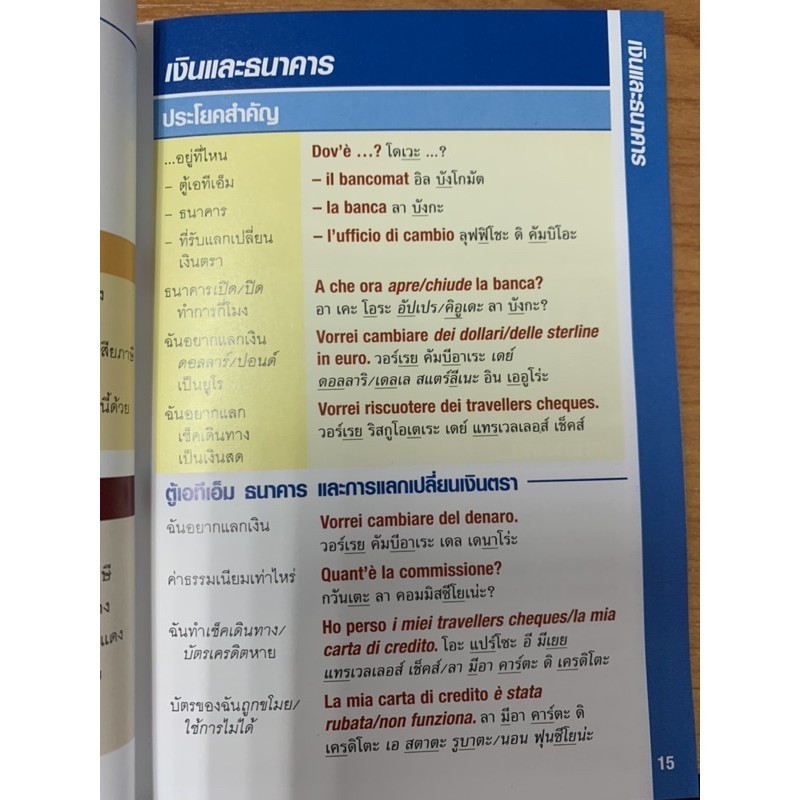 เงินและธนาคาร
ประโยคสำคัญ
...อยู่ที่ไหน Dov'è ...? โดเวะ ...?
– ตู้เอทีเอ็ม – il bancomat อิล บังโกมัต
– ธนาคาร – la banca ลา บังกะ
– ที่รับแลกเปลี่ยน – l'ufficio di cambio ลุฟฟิโชะ ดิ คัมบิโอะ
เงินตรา
ธนาคารเปิด/ปิด A che ora apre/chiude la banca?
ทำการกี่โมง อา เคะ โอระ อัปเปร/คิอูเดะ ลา บังกะ?
ฉันอยากแลกเงิน Vorrei cambiare dei dollari/delle sterline
ดอลลาร์/ปอนด์ in euro. วอร์เรย คัมบีอาเระ เดย์
เป็นยูโร ดอลลาริ/เดลเล สแตร์ลีเนะ อิน เออูโร่ะ
ฉันอยากแลก Vorrei riscuotere dei travellers cheques.
เช็คเดินทาง วอร์เรย ริสกูโอเตเระ เดย์ แทรเวลเลอส์ เช็คส์
เป็นเงินสด
ตู้เอทีเอ็ม ธนาคาร และการแลกเปลี่ยนเงินตรา
ฉันอยากแลกเงิน Vorrei cambiare del denaro.
วอร์เรย คัมบีอาเระ เดล เดนาโร่ะ
ค่าธรรมเนียมเท่าไหร่ Quant'è la commissione?
กวันเตะ ลา คอมมิสซีโยเน่ะ?
ฉันทำเช็คเดินทาง/ Ho perso i miei travellers cheques/la mia
บัตรเครดิตหาย carta di credito. โอะ แปร์โซะ อี มีเยย
แทรเวลเลอส์ เช็คส์/ลา มีอา คาร์ตะ ดิ เครดิโตะ
บัตรของฉันถูกขโมย/ La mia carta di credito è stata
ใช้การไม่ได้ rubata/non funziona. ลา มีอา คาร์ตะ ดิ
เครดิโตะ เอ สตาตะ รูบาตะ/นอน ฟุนซีโยน่ะ
เงินและธนาคาร
15
สียภาษี
นี้ด้วย
แดง